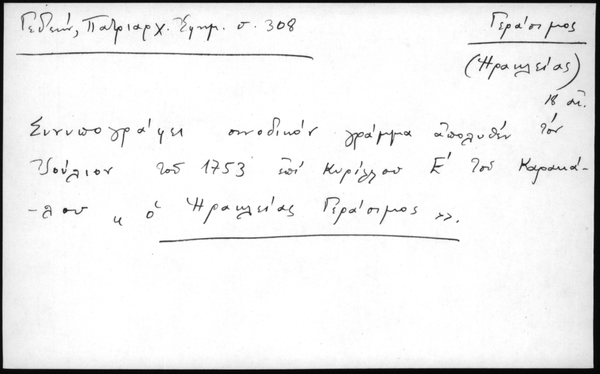 Γεδεών, Πατριαρχ. Ἐφημ. σ. 308
Γεράσιμος
(Ἡρακλείας)
18 αἰ.
Συνυπογράφει συνοδικόν γράμμα ἀπολυθέν τόν
Ἰούλιον τοῦ 1753 ἐπί Κυρίλλου Ε΄ τοῦ Καρακά-
-λου « ὁ Ἡρακλείας Γεράσιμος ».